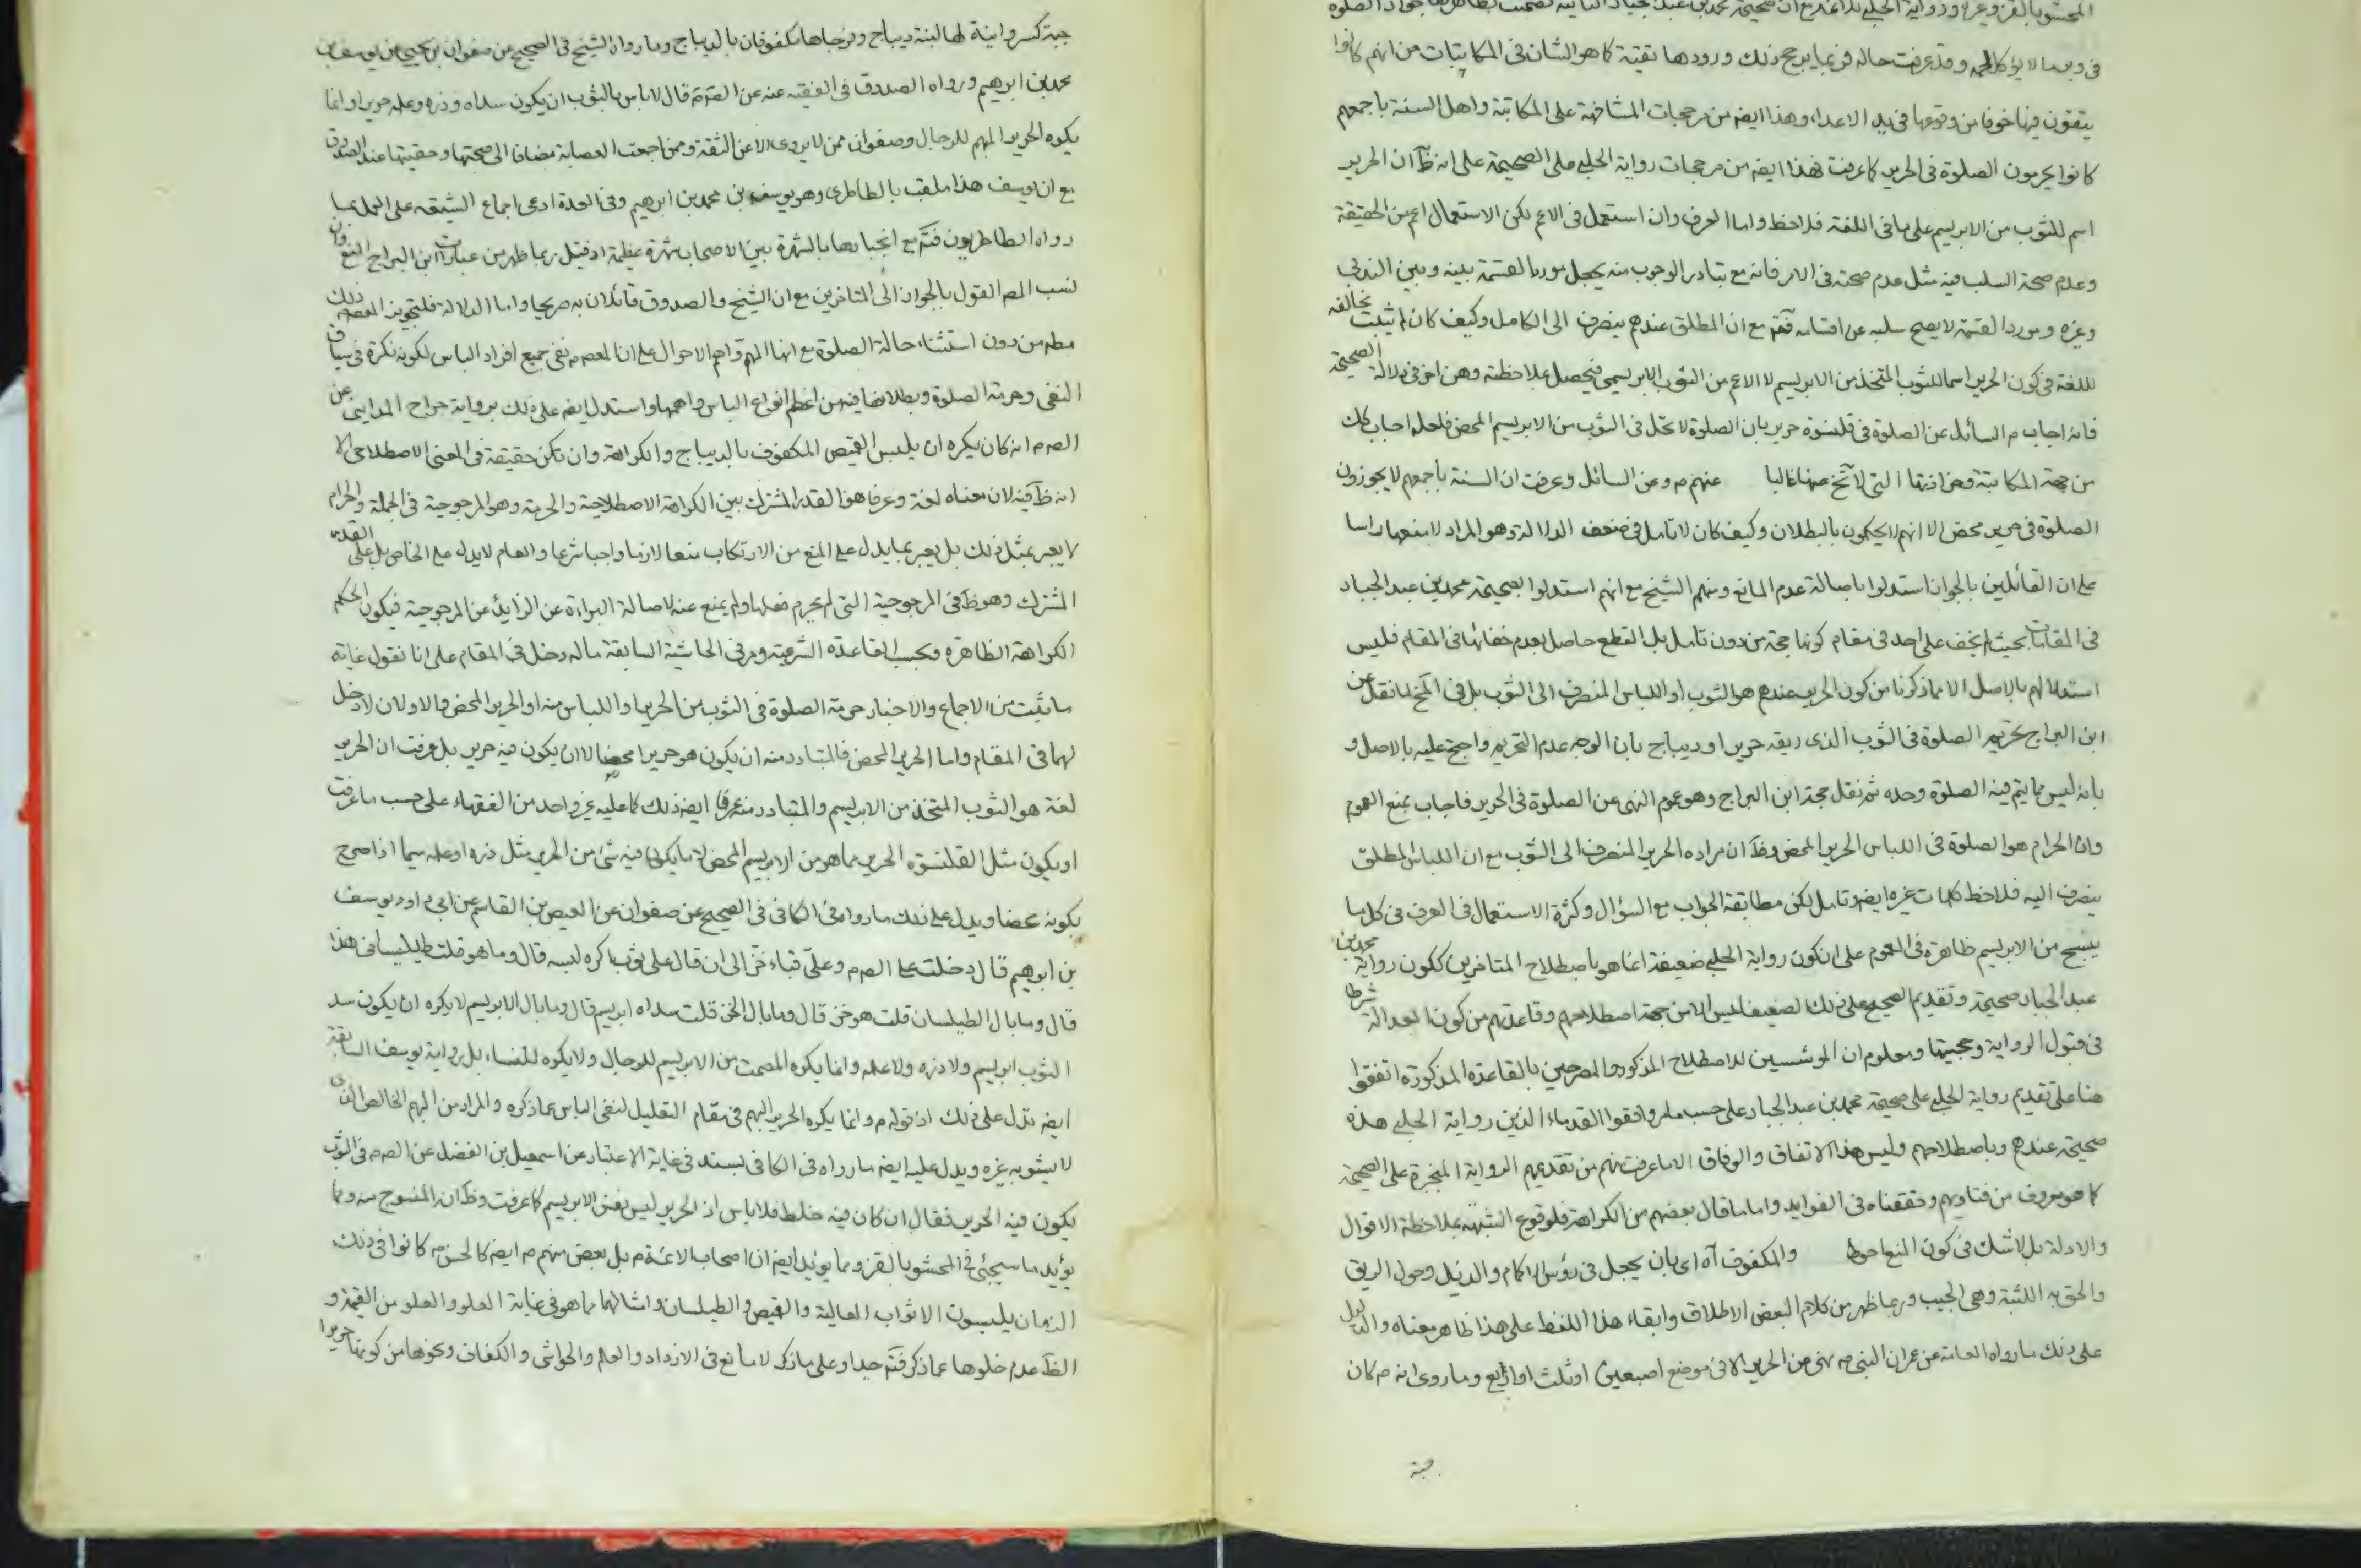 المحشو بالقز وغيره ورواية الحلبي
في وبر ما لا يؤكل لحمه وقد عرفت حاله وربما يرجح ذلك ورودها تقية كما هو الشان في المكاتبات من انهم كانوا
يتقون فيها خوفا من وقوعها في يد الاعداء وهذا ايضه من مرجحات المشافهة على المكاتبة واهل السنة باجمعهم
كانوا يحرمون الصلوة في الحرير كما عرفت فهذا ايضه من مرجحات رواية الحلبي على الصحيحة على انه ظ ان الحرير
اسم للثوب من الابريسم على ما في اللغة فلاحظ واما العرف وان استعمل في الاعم لكن الاستعمال اعم من الحقيقة
وعدم صحة السلب فيه مثل عدم صحته في الامر فانه مع تبادر الوجوب منه يجعل مورد القسمة بينه وبين الندب
وغيره ومورد القسمة لا يصح سلبه عن اقسامه فتم مع ان المطلق عندهم ينصرف الى الكامل وكيف كان لم يثبت مخالفة
للغة في كون الحرير اسما للثوب المتخذ من الابريسم لا الاعم من الثوب الابريسمي فيحصل بملاحظته وهن اخر في دلالة الصحيحة
فانه اجاب م السائل عن الصلوة في قلنسوة حرير بان الصلوة لا تحل في الثوب من الابريسم المحض فلعله اجاب كك
من جهة المكاتبة وحزازتها التي لا تخ عنها غالبا عنهم م وعن السائل وعرفت ان السنة باجمعهم لا يجوزون
الصلوة في حرير محض الا انهم لا يحكمون بالبطلان وكيف كان لا تامل في ضعف الدلالة وهو المراد لا منعها راسا
على ان القائلين بالجواز استدلوا باصالة عدم المانع ومنهم الشيخ مع انهم استدلوا بصحيحة محمد بن عبد الجبار
في المقامات بحيث لم يخف على احد في مقام كونها حجة من دون تامل بل القطع حاصل بعدم خفائها في المقام فليس
استدلالهم بالاصل الا بما ذكرنا من كون الحرير عندهم هو الثوب او اللباس المنصرف الى الثوب بل في المخ لما نقل عن
ابن البراج تحريم الصلوة في الثوب الذي زيقه حرير او ديباج بان الوجه عدم التحريم واحتج عليه بالاصل و
بانه ليس مما يتم فيه الصلوة وحده ثم نقل حجة ابن البراج وهو عموم النهي عن الصلوة في الحرير فاجاب بمنع العموم
وان الحرام هو الصلوة في اللباس الحرير المحض وظ ان مراده الحرير المنصرف الى الثوب مع ان اللباس المطلق
ينصرف اليه فلاحظ كلمات غيره ايضه وتامل لكن مطابقة الجواب مع السؤال وكثرة الاستعمال في العرف في كل ما
ينسج من الابريسم ظاهرة في العموم على ان كون رواية الحلبي ضعيفة انما هو باصطلاح المتاخرين ككون رواية محمد بن
عبد الجبار صحيحة وتقديم الصحيح على ذلك الضعيف ليس الا من جهة اصطلاحهم وقاعدتهم من كون العدالة شرطا
في قبول الرواية وحجيتها ومعلوم ان المؤسسين للاصطلاح المذكور والمصرحين بالقاعدة المذكورة اتفقوا
هنا على تقديم رواية الحلبي على صحيحة محمد بن عبد الجبار على حسب ما مر وافقوا القدماء الذين رواية الحلبي هذه
صحيحة عندهم وباصطلاحهم وليس هذا الاتفاق والوفاق الا ما عرفت منهم من تقديمهم الرواية المنجبرة على الصحيحة
كما هو معروف من فتاويهم وحققناه في الفوايد واما ما قال بعضهم من الكراهة فلوقوع الشبهة بملاحظة الاقوال
والادلة بل لا شك في كون المنع احوط والمكفوف آه اي بان يجعل في رؤس الاكمام والذيل وحول الزيق
والحق به اللبنة وهي الجيب وربما ظهر من كلام البعض الاطلاق وابقاء هذا اللفظ على هذا ظاهر معناه والدليل
على ذلك ما رواه العامة عن عمر ان النبي ص نهى عن الحرير الا في موضع اصبعين او ثلث او اربع وما روي انه ص كان
جبة كسروانية لها لبنة ديباج وفرجاها مكفوفان بالديباج وما رواه الشيخ في الصحيح عن صفوان بن يحيى عن يوسف بن
محمد بن ابرهيم ورواه الصدوق في الفقيه عنه عن الصم قال لا باس بالثوب ان يكون سداه وزره وعلمه حريرا وانما
يكره الحرير المبهم للرجال وصفوان ممن لا يروي الا عن الثقة وممن اجمعت العصابة مضافا الى صحتها وحقيتها عند الصدوق
مع ان يوسف هذا ملقب بالطاطري وهو يوسف بن محمد بن ابرهيم وفي العدة ادعى اجماع الشيعة على العمل بما
رواه الطاطريون فتم مع انجبارها بالشهرة بين الاصحاب شهرة عظيمة اذ قيل ربما ظهر من عبارات ابن البراج المنع وان
نسب المص القول بالجواز الى المتاخرين مع ان الشيخ والصدوق قائلان به صريحا واما الدلالة فلتجويز المعصوم ذلك
مطم من دون استثناء حالة الصلوة مع انها اهم واعم الاحوال على ان المعصوم م نفى جميع افراد الباس لكونه نكرة في سياق
النفي وحرمة الصلوة وبطلانها فيه من اعظم انواع الباس واهمها واستدل ايضه على ذلك برواية جراح المدايني عن
الصم م انه كان يكره ان يلبس القميص المكفوف بالديباج والكراهة وان تكن حقيقة في المعنى الاصطلاحي الا
انه ظ فيه لان معناه لغة وعرفا هو القدر المشترك بين الكراهة الاصطلاحية والحرمة وهو المرجوحية في الجملة والحرام
لا يعبر بمثل ذلك بل يعبر بما يدل على المنع من الارتكاب منعا لازما واجبا شرعا والعام لا يدل على الخاص بل على القدر
المشترك وهو ظ في المرجوحية التي لم يحرم فعلها ولم يمنع عنه لاصالة البراءة عن الزايد عن المرجوحية فيكون الحكم
الكراهة الظاهرة وبحسب القاعدة الشرعية ومر في الحاشية السابقة ما له دخل في المقام على انا نقول غاية
ما ثبت من الاجماع والاخبار حرمة الصلوة في الثوب من الحرير او اللباس منه او الحرير المحض والاولان لا دخل
لهما في المقام واما الحرير المحض فالمتبادر منه ان يكون هو حريرا محضا لا ان يكون فيه حرير بل عرفت ان الحرير
لغة هو الثوب المتخذ من الابريسم والمتبادر منه عرفا ايضه ذلك كما عليه غير واحد من الفقهاء على حسب ما عرفت
او يكون مثل القلنسوة الحرير مما هو من الابريسم المحض لا ما يكون فيه شئ من الحرير مثل زره او علمه سيما اذا صرح
بكونه محضا ويدل على ذلك ما رواه في الكافي في الصحيح عن صفوان عن العيص بن القاسم عن ابي داود يوسف
بن ابرهيم قال دخلت على الصم م وعلي قباء خز الى ان قال علي ثوب اكره لبسه قال وما هو قلت طيلساني هذا
قال وما بال الطيلسان قلت هو خز قال وما بال الخز قلت سداه ابريسم قال وما بال الابريسم لا يكره ان يكون سد
الثوب ابريسم ولا زره ولا علمه وانما يكره المصمت من الابريسم للرجال ولا يكره للنساء بل رواية يوسف السابقة
ايضه تدل على ذلك اذ قوله م وانما يكره الحرير المبهم في مقام التعليل لنفي الباس عما ذكره والمراد من المبهم الخالص الذي
لا يشوبه غيره ويدل عليه ايضه ما رواه في الكافي بسند في غاية الاعتبار عن اسمعيل بن الفضل عن الصم م في الثوب
يكون فيه الحرير فقال ان كان فيه خلط فلا باس اذ الحرير ليس نفس الابريسم كما عرفت وظ انه المنسوج منه ومما
يؤيد ما سيجئ في المحشو بالقز ومما يؤيد ايضه ان اصحاب الائمة م بل بعض منهم م ايضه كالحسن م كانوا في ذلك
الزمان يلبسون الاثواب العالية والقميص والطيلسان وامثالهما مما هو في غاية العلو والغلو من القيمة و
الظ عدم خلوها عما ذكر فتم جدا وعلى ما ذكر لا مانع في الازرار والعلم والحواشي والكفاف ونحوها من كونها حريرا